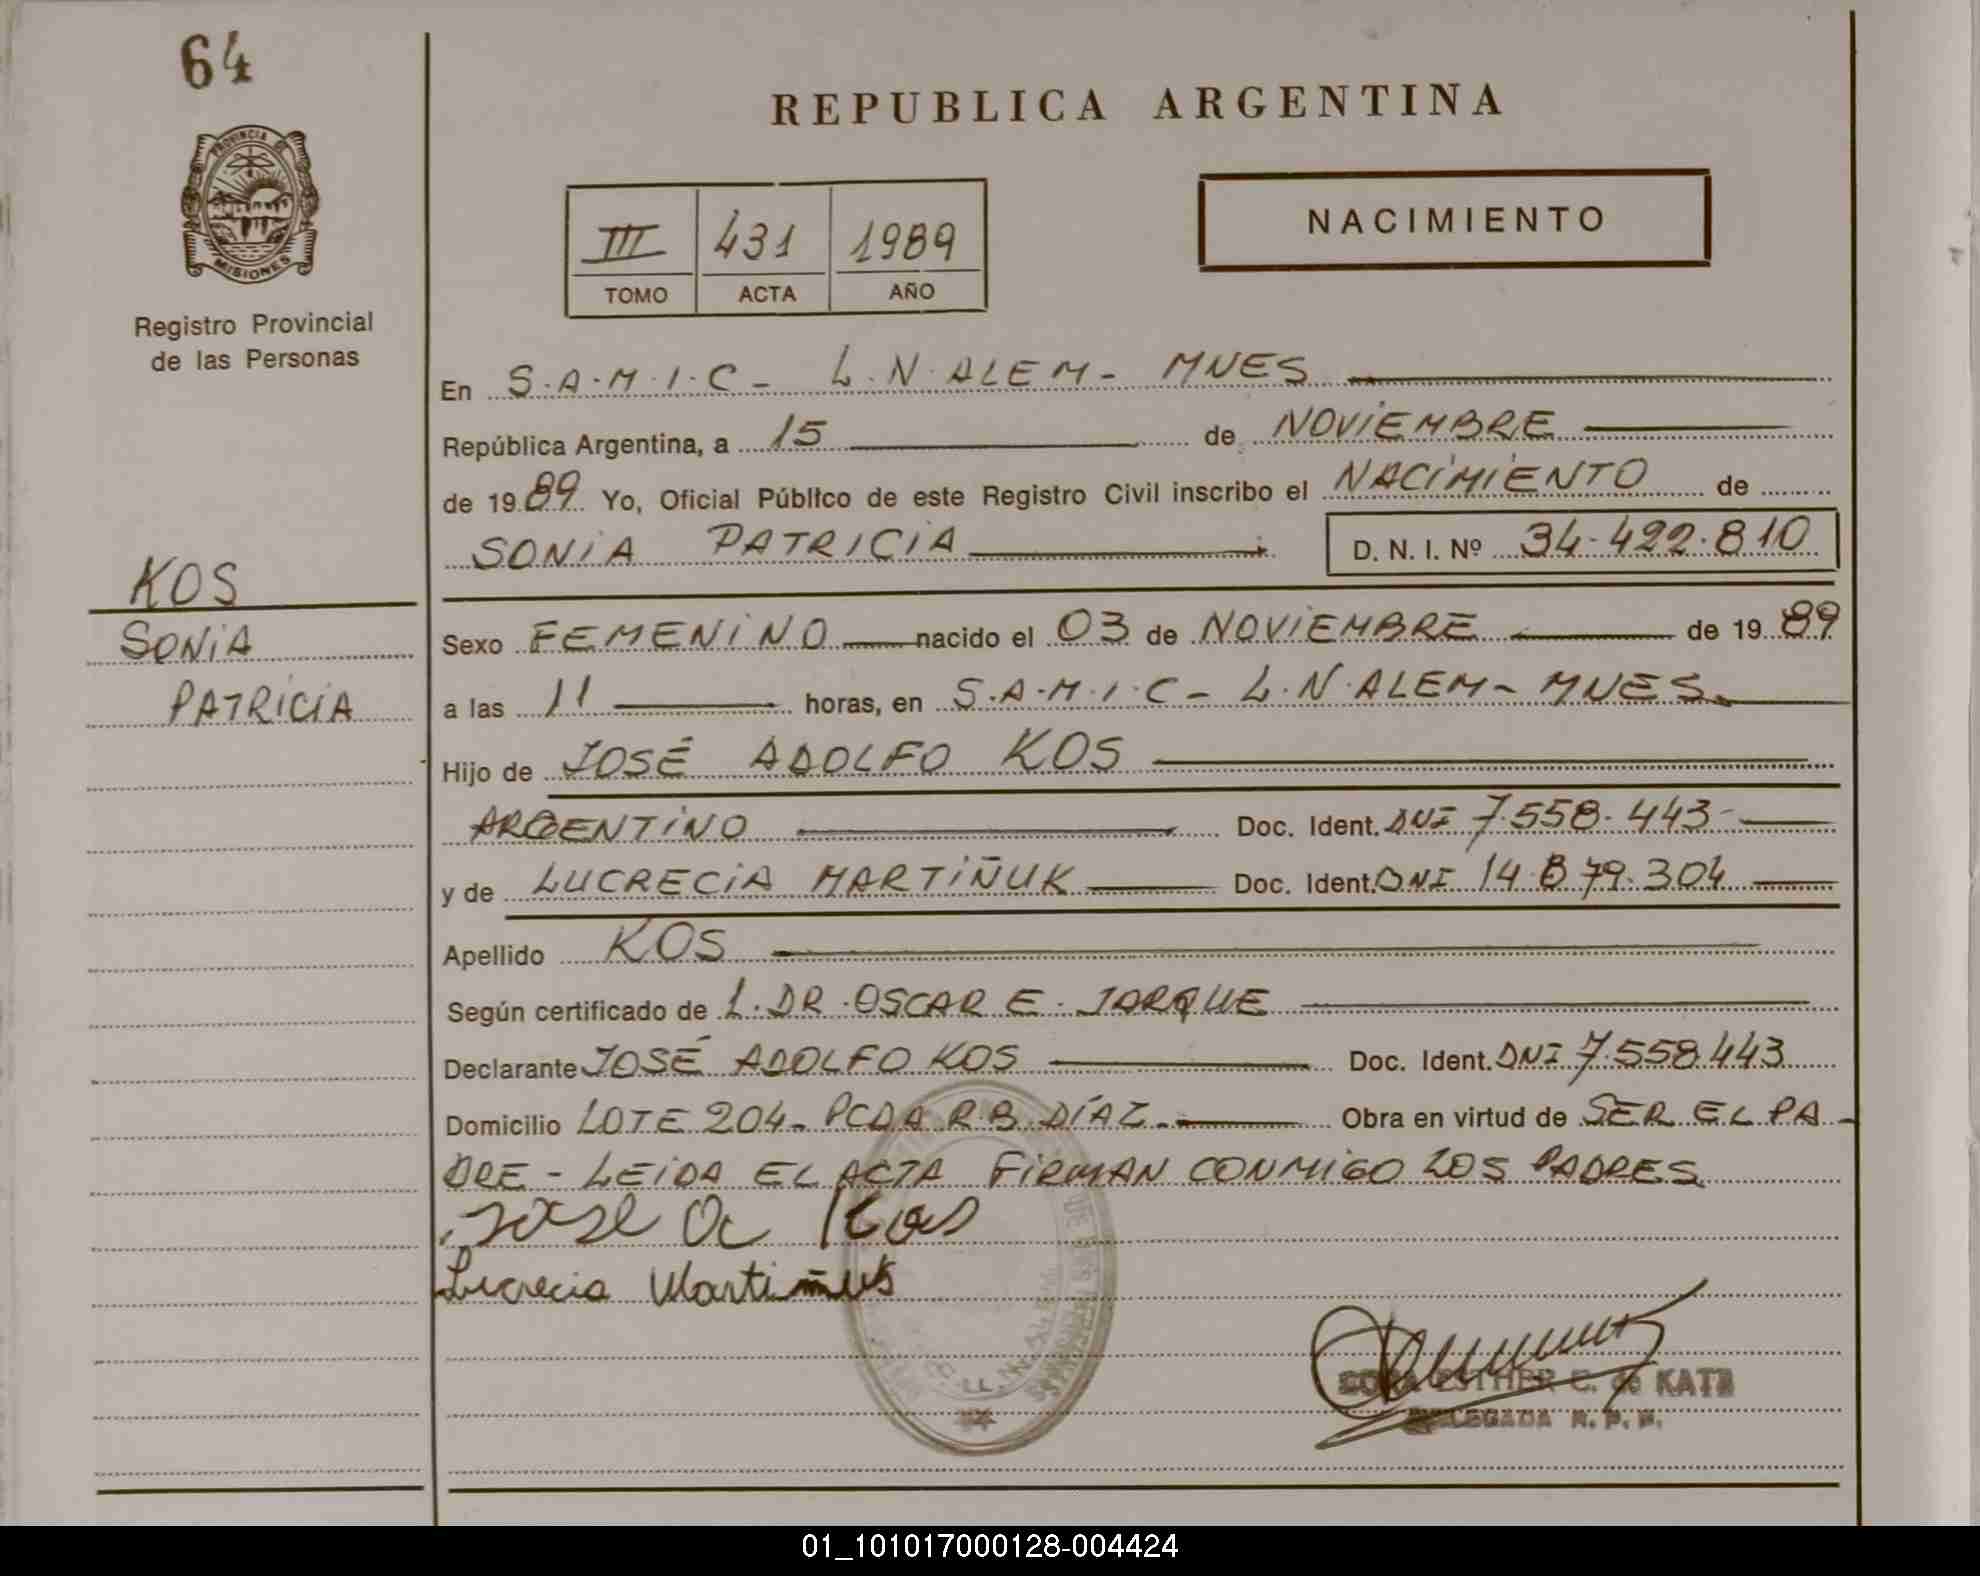 64
REPUBLICA ARGENTINA
PROVINCIA DE MISIONES
Registro Provincial
de las Personas
III 431 1989
TOMO ACTA AÑO
NACIMIENTO
En S.A.M.I.C - L.N.ALEM - MNES
República Argentina, a 15 de NOVIEMBRE
de 1989 Yo, Oficial Público de este Registro Civil inscribo el NACIMIENTO de
SONIA PATRICIA D. N. I. Nº 34.422.810
KOS
SONIA
PATRICIA
Sexo FEMENINO nacido el 03 de NOVIEMBRE de 1989
a las 11 horas, en S.A.M.I.C - L.N.ALEM - MNES
Hijo de JOSÉ ADOLFO KOS
ARGENTINO Doc. Ident. DNI 7.558.443
y de LUCRECIA MARTIÑUK Doc. Ident. DNI 14.879.304
Apellido KOS
Según certificado de L. DR. OSCAR E. JARQUE
Declarante JOSÉ ADOLFO KOS Doc. Ident. DNI 7.558.443
Domicilio LOTE 204 - PCDA R.B. DÍAZ - Obra en virtud de SER EL PA-
DRE - LEIDA EL ACTA FIRMAN CONMIGO LOS PADRES
José A Kos
Lucrecia Martiñuk
ESTHER C. de KATZ
DELEGADA R. P. P.
01_101017000128-004424